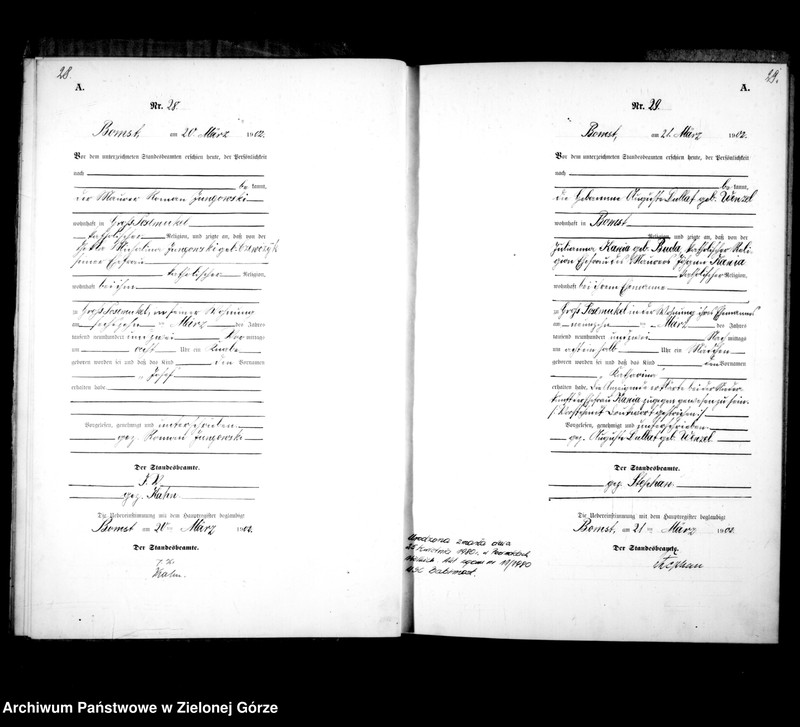 28.
A.
Nr. 28.
Bomst, am 20 März 1902.
Vor dem unterzeichneten Standesbeamten erschien heute, der Persönlichkeit
nach
be kannt,
der Maurer Roman Jungowski
wohnhaft in Groß Postmukel
katholischer Religion, und zeigte an, daß von der
Jungowski geb.
seiner Ehefrau
katholischer Religion,
wohnhaft bei ihm
zu Groß Postmukel, in seiner Wohnung
am sechszehn ten März des Jahres
tausend neunhundert und zwei Vor mittags
um acht Uhr ein Knabe
geboren worden sei und daß das Kind den Vornamen
"Josef"
erhalten habe.
Vorgelesen, genehmigt und unterschrieben
gez. Roman Jungowski
Der Standesbeamte.
J. V.
gez. Kahn
Die Uebereinstimmung mit dem Hauptregister beglaubigt
Bomst am 20 ten März 1902.
Der Standesbeamte.
J. V.
Kahn.
29.
A.
Nr. 29.
Bomst, am 21. März 1902.
Vor dem unterzeichneten Standesbeamten erschien heute, der Persönlichkeit
nach
be kannt,
die Hebamme Auguste geb. Wenzel
wohnhaft in Bomst
Religion, und zeigte an, daß von der
Julianna Kania geb. Buda, katholischer Reli-
gion Ehefrau des Maurers Kania
katholischer Religion,
wohnhaft bei ihrem Ehemanne
zu Groß Postmukel in der Wohnung ihres Ehemannes
am neunzehn ten März des Jahres
tausend neunhundert und zwei Nach mittags
um acht einhalb Uhr ein Mädchen
geboren worden sei und daß das Kind den Vornamen
"Katharina"
erhalten habe. Die Anzeigende erklärte bei der Nieder-
kunft der Ehefrau Kania zugegen gewesen zu sein.
Vorstehend Druckwort gestrichen
Vorgelesen, genehmigt und unterschrieben
gez. Auguste geb. Wenzel
Der Standesbeamte.
gez. Stephan
Die Uebereinstimmung mit dem Hauptregister beglaubigt
Bomst, am 21 ten März 1902.
Der Standesbeamte.
Stephan
Urodzona zmarła dnia
25 kwietnia 1980r. w
Akt zgonu nr 11/1980
USC Babimost.
Archiwum Państwowe w Zielonej Górze